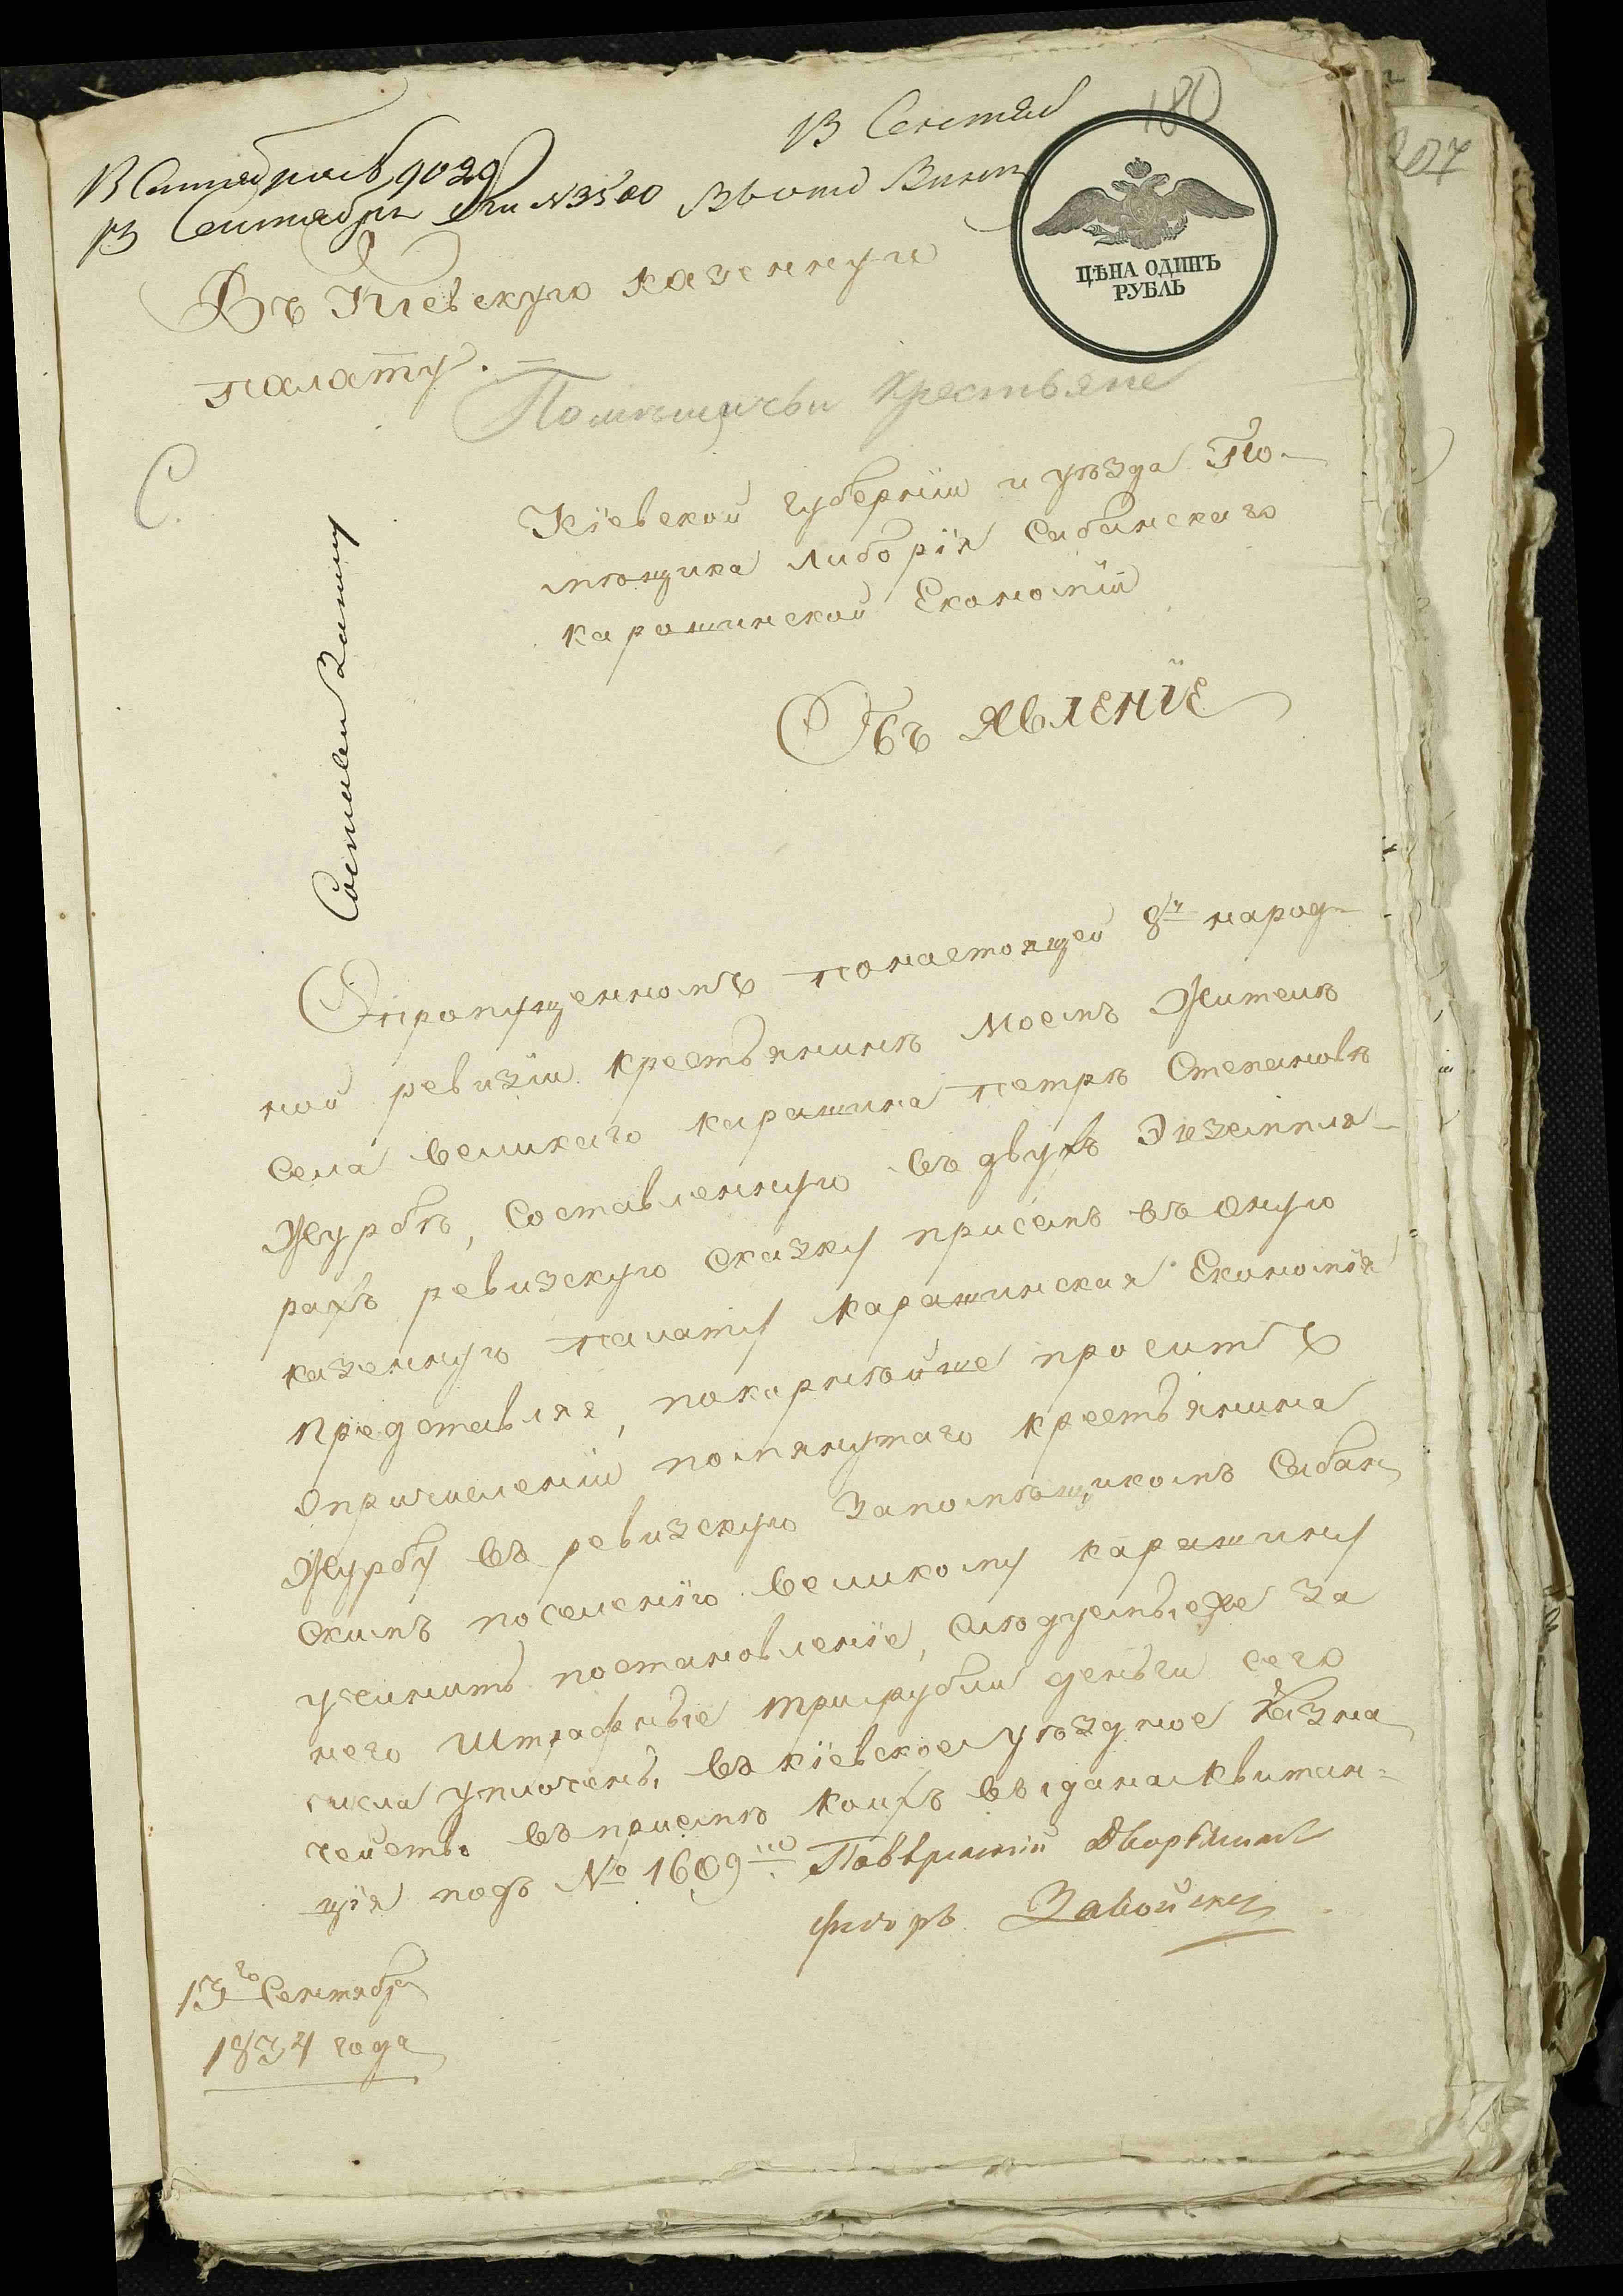 180
207
13 Сентяб
9029
13 Сентября № 3500
ЦѢНА ОДИНЪ
РУБЛЬ
Въ Кіевскую казенную
палату.
Помѣщичьи крестьяне
С.
Кіевской губерніи и уѣзда По-
мѣщика Либорія Сабанскаго
Карашинской Економіи
Объявленіе
Опропущенномъ понастоящей 8й народ-
ной ревизіи крестьянинѣ Моемъ Жителѣ
Села Великаго Карашина петрѣ Степановѣ
Журбѣ, Составленную въ двухъ Экземпля-
рахъ ревизскую Сказку присемъ въ оную
казенную палату Карашинская Економія
Представляя, покорнѣйше проситъ
Опричисленіи помянутаго крестьянина
Журбу въ ревизскую Запомѣщикомъ Сабан
Скимъ поселенію Великому Карашину
учинить постановленіе, Слѣдуемыеже За
него Штрафные три рубли деньги сего
числа уплочены въ кіевское уѣздное Казна
чейство въ пріемѣ коихъ выдана квитан-
ція подъ № 1609мъ. Повѣренный Дворянинъ
Завойскі
13го Сентября
1834 года